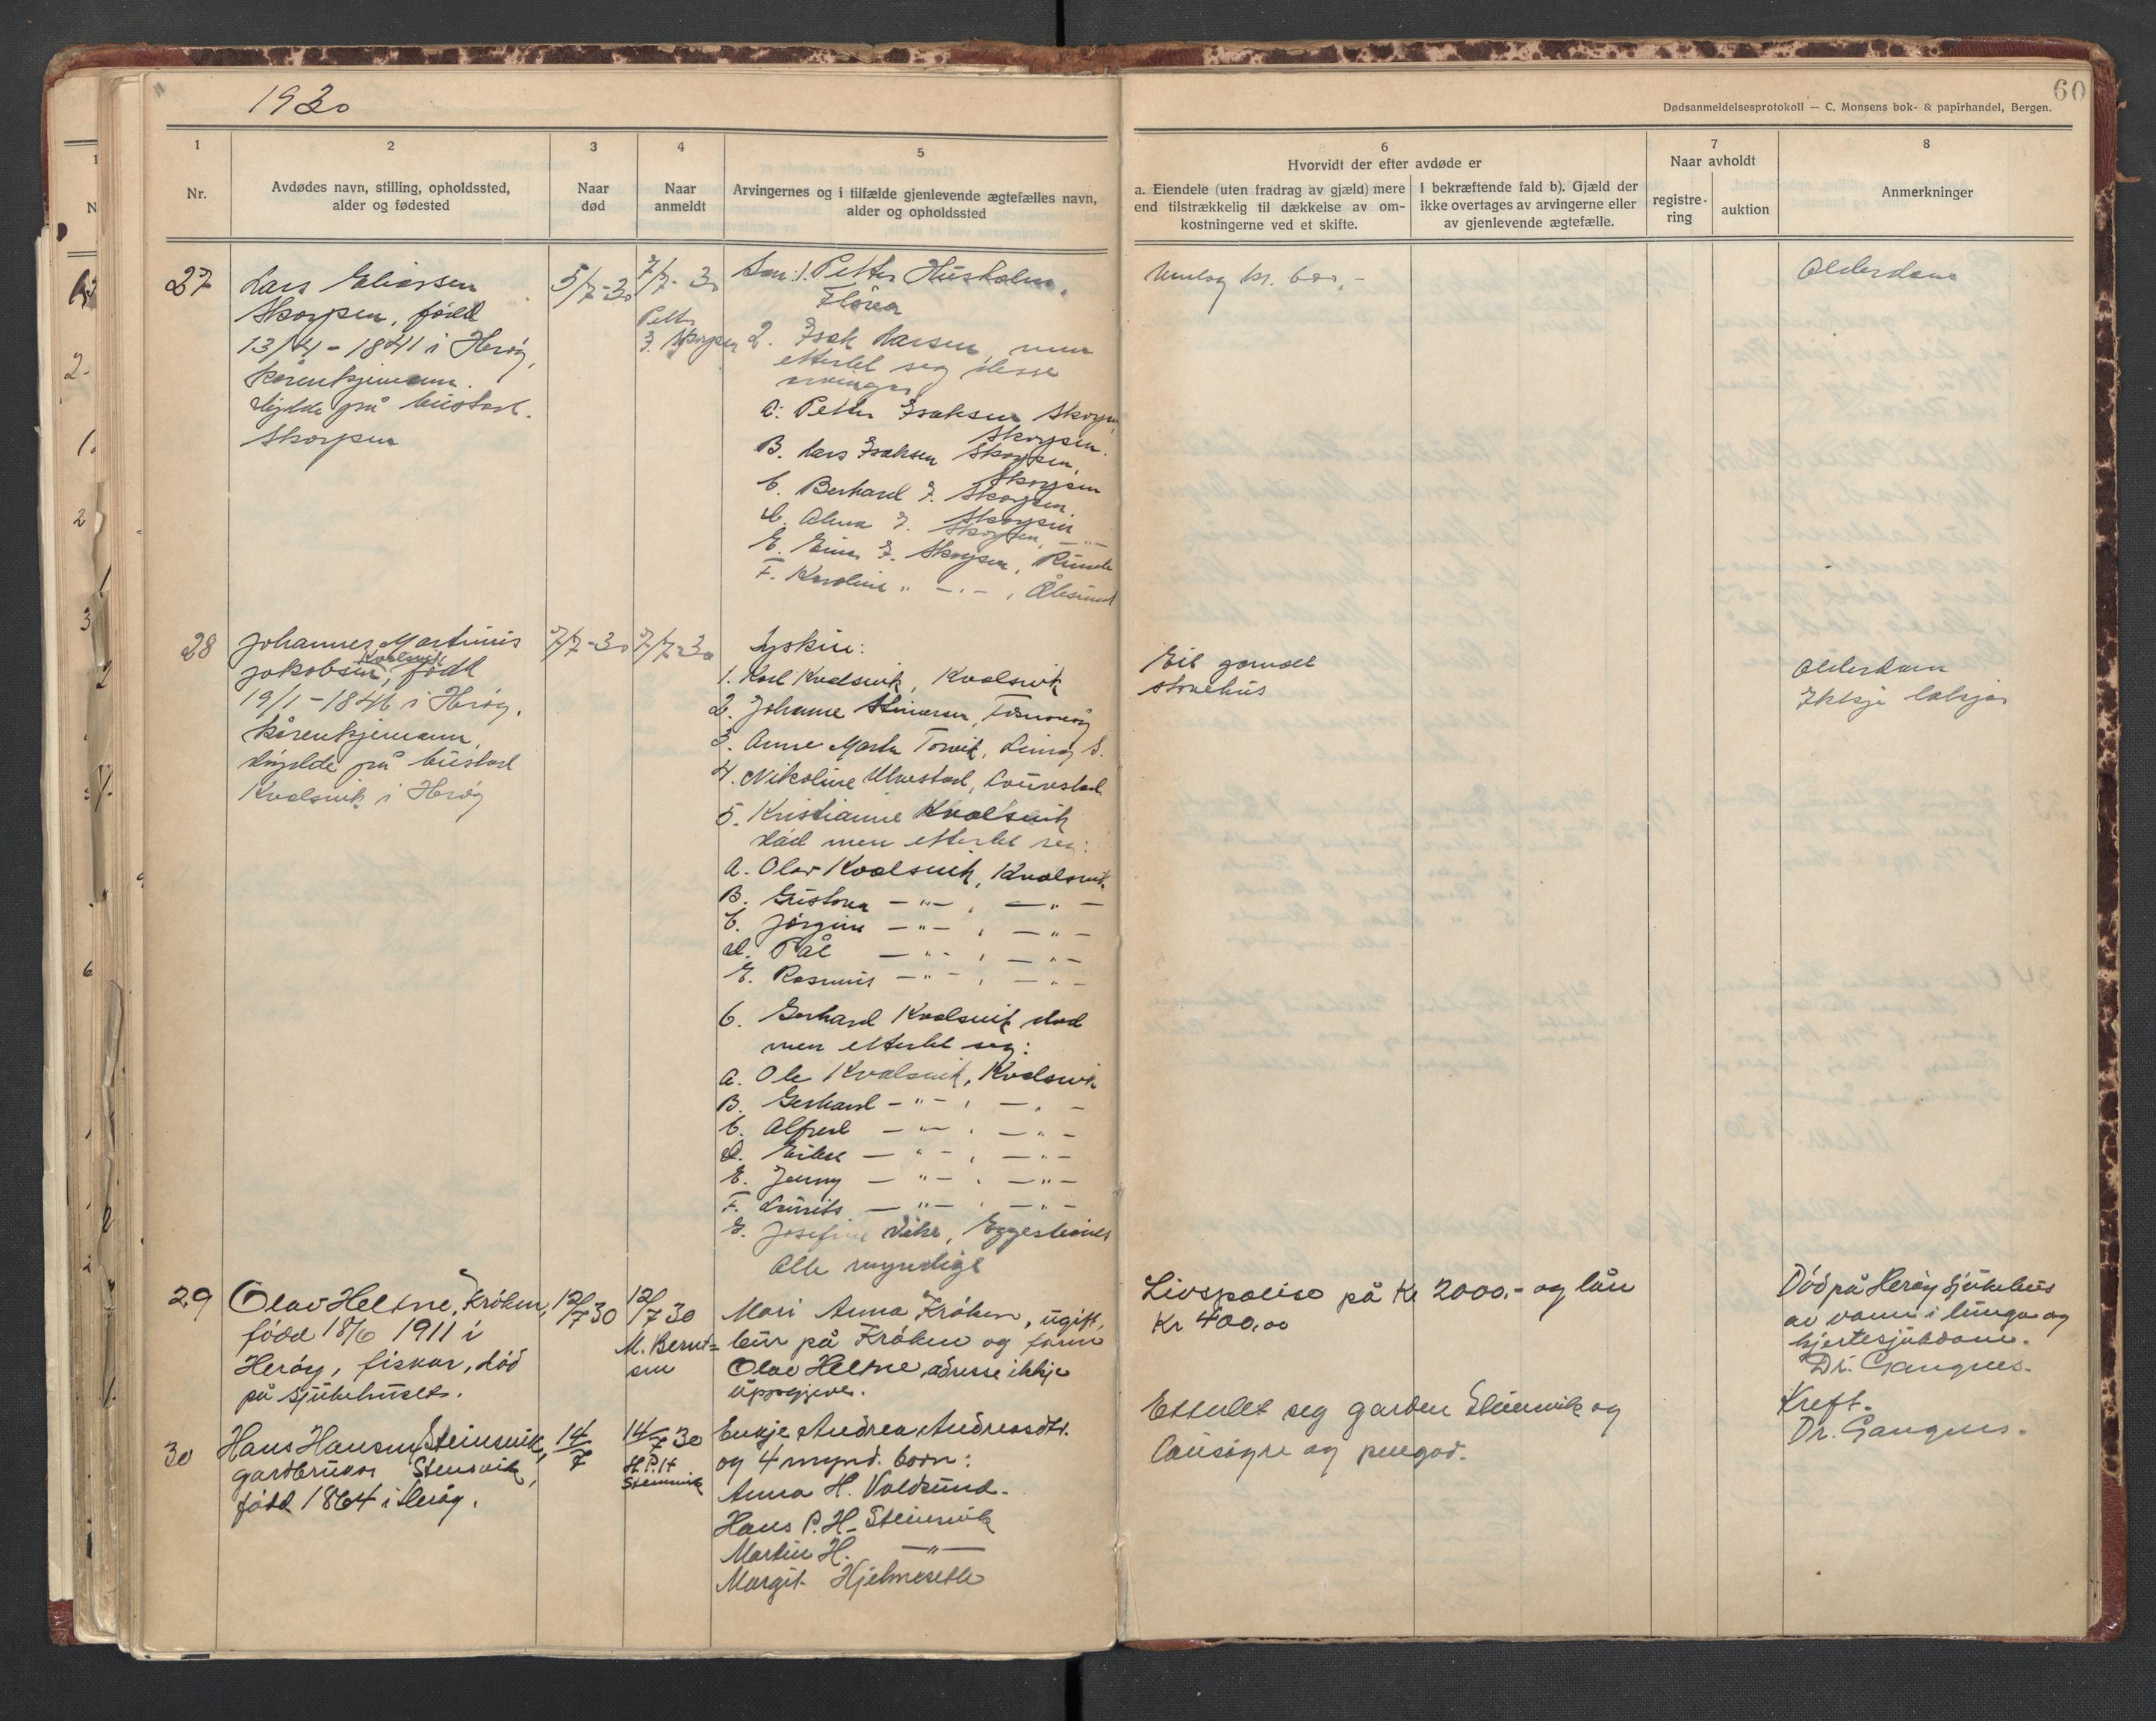 1930
60
Dødsanmeldelsesprotokoll — C. Monsens bok- & papirhandel, Bergen.
1
Nr.
2
Avdødes navn, stilling, opholdssted,
alder og fødested
3
Naar
død
4
Naar
anmeldt
5
Arvingernes og i tilfælde gjenlevende ægtefælles navn,
alder og opholdssted
6
Hvorvidt der efter avdøde er
a. Eiendele (uten fradrag av gjæld) mere
end tilstrækkelig til dækkelse av om-
kostningerne ved et skifte.
I bekræftende fald b). Gjæld der
ikke overtages av arvingerne eller
av gjenlevende ægtefælle.
7
Naar avholdt
registre-
ring
auktion
8
Anmerkninger
27
Lars Eliassen
Skorpen, född
13/4 - 1841 i Herøy,
Kårenkjemann.
Skorpen
5/7-30
7/7-30
Petter
I. Skorpen
Son: 1. Petter Husholm,
Florø
2. Isak Larsen, men
etterlet seg desse
arvingar
a. Petter Isaksen Skorpen
Skorpen.
B. Lars Isaksen Skorpen,
Skorpen
C. Berhard I. Skorpen,
Skorpen
D. Alma I. Skorpen, -"-
E. Einar I. Skorpen, Runde
F. Karoline " -"-, Ålesund
kr. 600,-
Alderdom
28
Johannes Martinus
Kvalsvik
Jakobsen, född
19/1-1846 i Herøy.
Kårenkjemann,
düydde på bustad
Kvalsvik i Herøy
7/7-30
7/7-30
Syskin:
1. Karl Kvalsvik, Kvalsvik
2. Johanne
3. Anne Marta Torvik, Leinøy S.
4. Nikoline Ulvestad,
5. Kristianne Kvalsvik
död men etterlet seg:
A. Olav Kvalsvik, Kvalsvik
B. Gustava -"-, -"-
C. Jørgine -"-, -"-
D. Pål -"-, -"-
E. Rasmus -"-, -"-
6. Gerhard Kvalsvik död
men etterlet seg:
A. Ole Kvalsvik, Kvalsvik
B. Gerhard -"-, -"-
C. Alfred -"-, -"-
D. -"-, -"-
E. Jenny -"-, -"-
F. Laurits -"-, -"-
G. Josefine Vike, Eggesbönes
Alle myndige
Eit gamalt
stovehus
Alderdom
Ikkje lækjar
29
Olav Heltne, Kröken,
född 18/6 1911 i
Heröy, fiskar, död
på sjukehuset.
12/7 30
12/7 30
M. Bernt=
sen
Mari Anna Kröken, ugift,
bur på Kröken og faren
Olav Heltne, adresse ikkje
uppgjeve.
Livspolise på Kr 2000.- og lån
Kr 400,00
Död på Heröy Sjukehus
av vann i lunga og
hjertesjukdom.
Dr. Gangnes.
30
Hans Hansen Steinsvik,
gardbrukar Stensvik,
född 1864 i Heröy.
14/7
14/7 30
H.P.H
Steinsvik
Enkje Andrea Andreasdtr.
og 4 mynd. born:
Anna H. Voldsund.
Hans P.H. Steinsvik
Martin H. -"-
Margit Hjelmeseth
Etterlet seg garden Steinsvik og
lausöyre og pengar.
Kreft.
Dr. Gangnes.